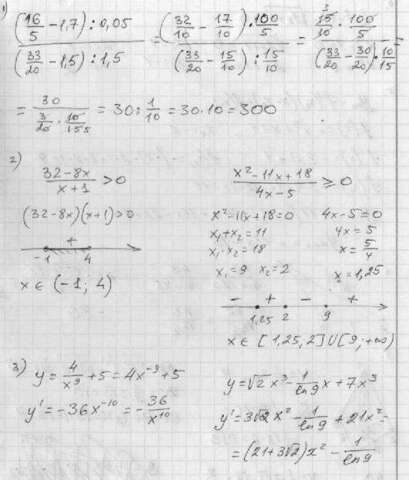 1)
((16/5 − 1,7) : 0,05) / ((33/20 − 1,5) : 1,5) = ((32/10 − 17/10) · 100/5) / ((33/20 − 15/10) : 15/10) = (15/10 · 100/5) / ((33/20 − 30/20) · 10/15) =
= 30 / (3/20 · 10/15) = 30 : 1/10 = 30 · 10 = 300
2)
(32 − 8x) / (x + 1) > 0
(32 − 8x)(x + 1) > 0
+
−1 4
x ∈ (−1; 4)
(x² − 11x + 18) / (4x − 5) ⩾ 0
x² − 11x + 18 = 0 4x − 5 = 0
x₁ + x₂ = 11 4x = 5
x₁ · x₂ = 18 x = 5/4
x₁ = 9 x₂ = 2 x = 1,25
− + − +
1,25 2 9
x ∈ [1,25, 2] ∪ [9; +∞)
3)
y = 4/x⁹ + 5 = 4x⁻⁹ + 5
y' = −36x⁻¹⁰ = −36/x¹⁰
y = √2 x³ − 1/ln9 x + 7x³
y' = 3√2 x² − 1/ln9 + 21x² =
= (21 + 3√2)x² − 1/ln9